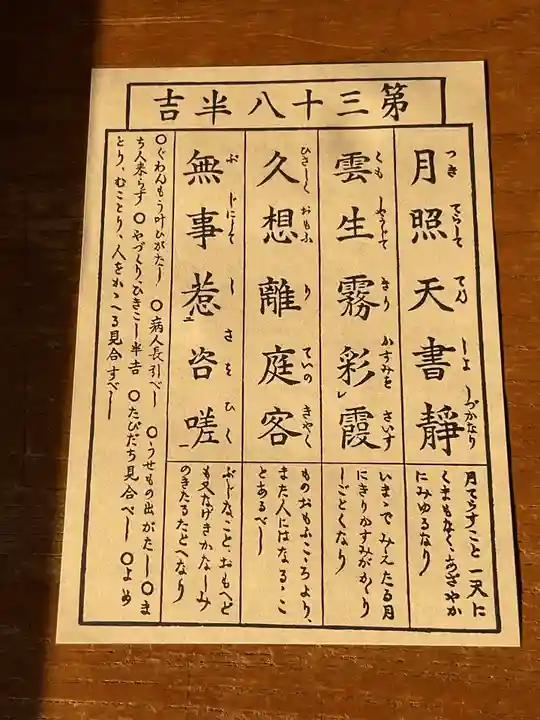 第三十八半吉
月照天書静
つき てらして てん しよ しづかなり
月てらすこと一天に
くまもなく、あざやか
にみゆるなり
雲生霧彩霞
くも しやうじて きり かすみを さいす
いまゝでみえたる月
にきりかすみがかゝり
しごとくなり
久想離庭客
ひさしく おもふ り ていの きやく
ものおもふこゝろより、
また人にはなるゝこ
とあるべし
無事惹咨嗟
ぶ じにして しさを ひく
ぶじなこと、おもへど
も又なげきかなしみ
のきたるたとへなり
○ぐわんもう叶ひがたし ○病人長引べし ○うせもの出がたし ○ま
ち人来らず ○やづくり、ひきこし半吉 ○たびだち見合べし ○よめ
とり、むことり、人をかゝへる見合すべし